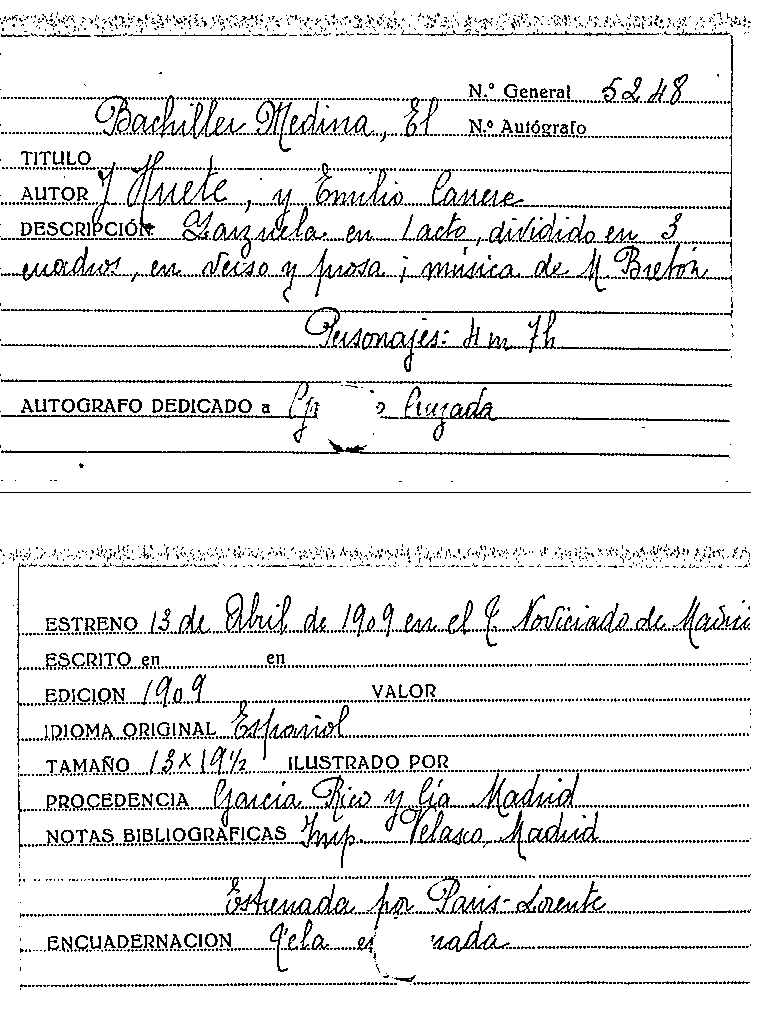 N.º General 5248
Bachiller Medina, El N.º Autógrafo
TITULO
AUTOR J Huete, y Emilio Carrere
DESCRIPCIÓN Zarzuela en 1 acto, dividido en 3
cuadros, en verso y prosa; música de M. Bretón
Personajes: 4 m 7h
AUTOGRAFO DEDICADO a Cruzada
ESTRENO 13 de Abril de 1909 en el T. Noviciado de Madrid
ESCRITO en en
EDICION 1909 VALOR
IDIOMA ORIGINAL Español
TAMAÑO 13 x 19½ ILUSTRADO POR
PROCEDENCIA García Rico y Cía Madrid
NOTAS BIBLIOGRAFICAS Imp. Velasco, Madrid
Estrenada por Paris-Lorente
ENCUADERNACION Tela